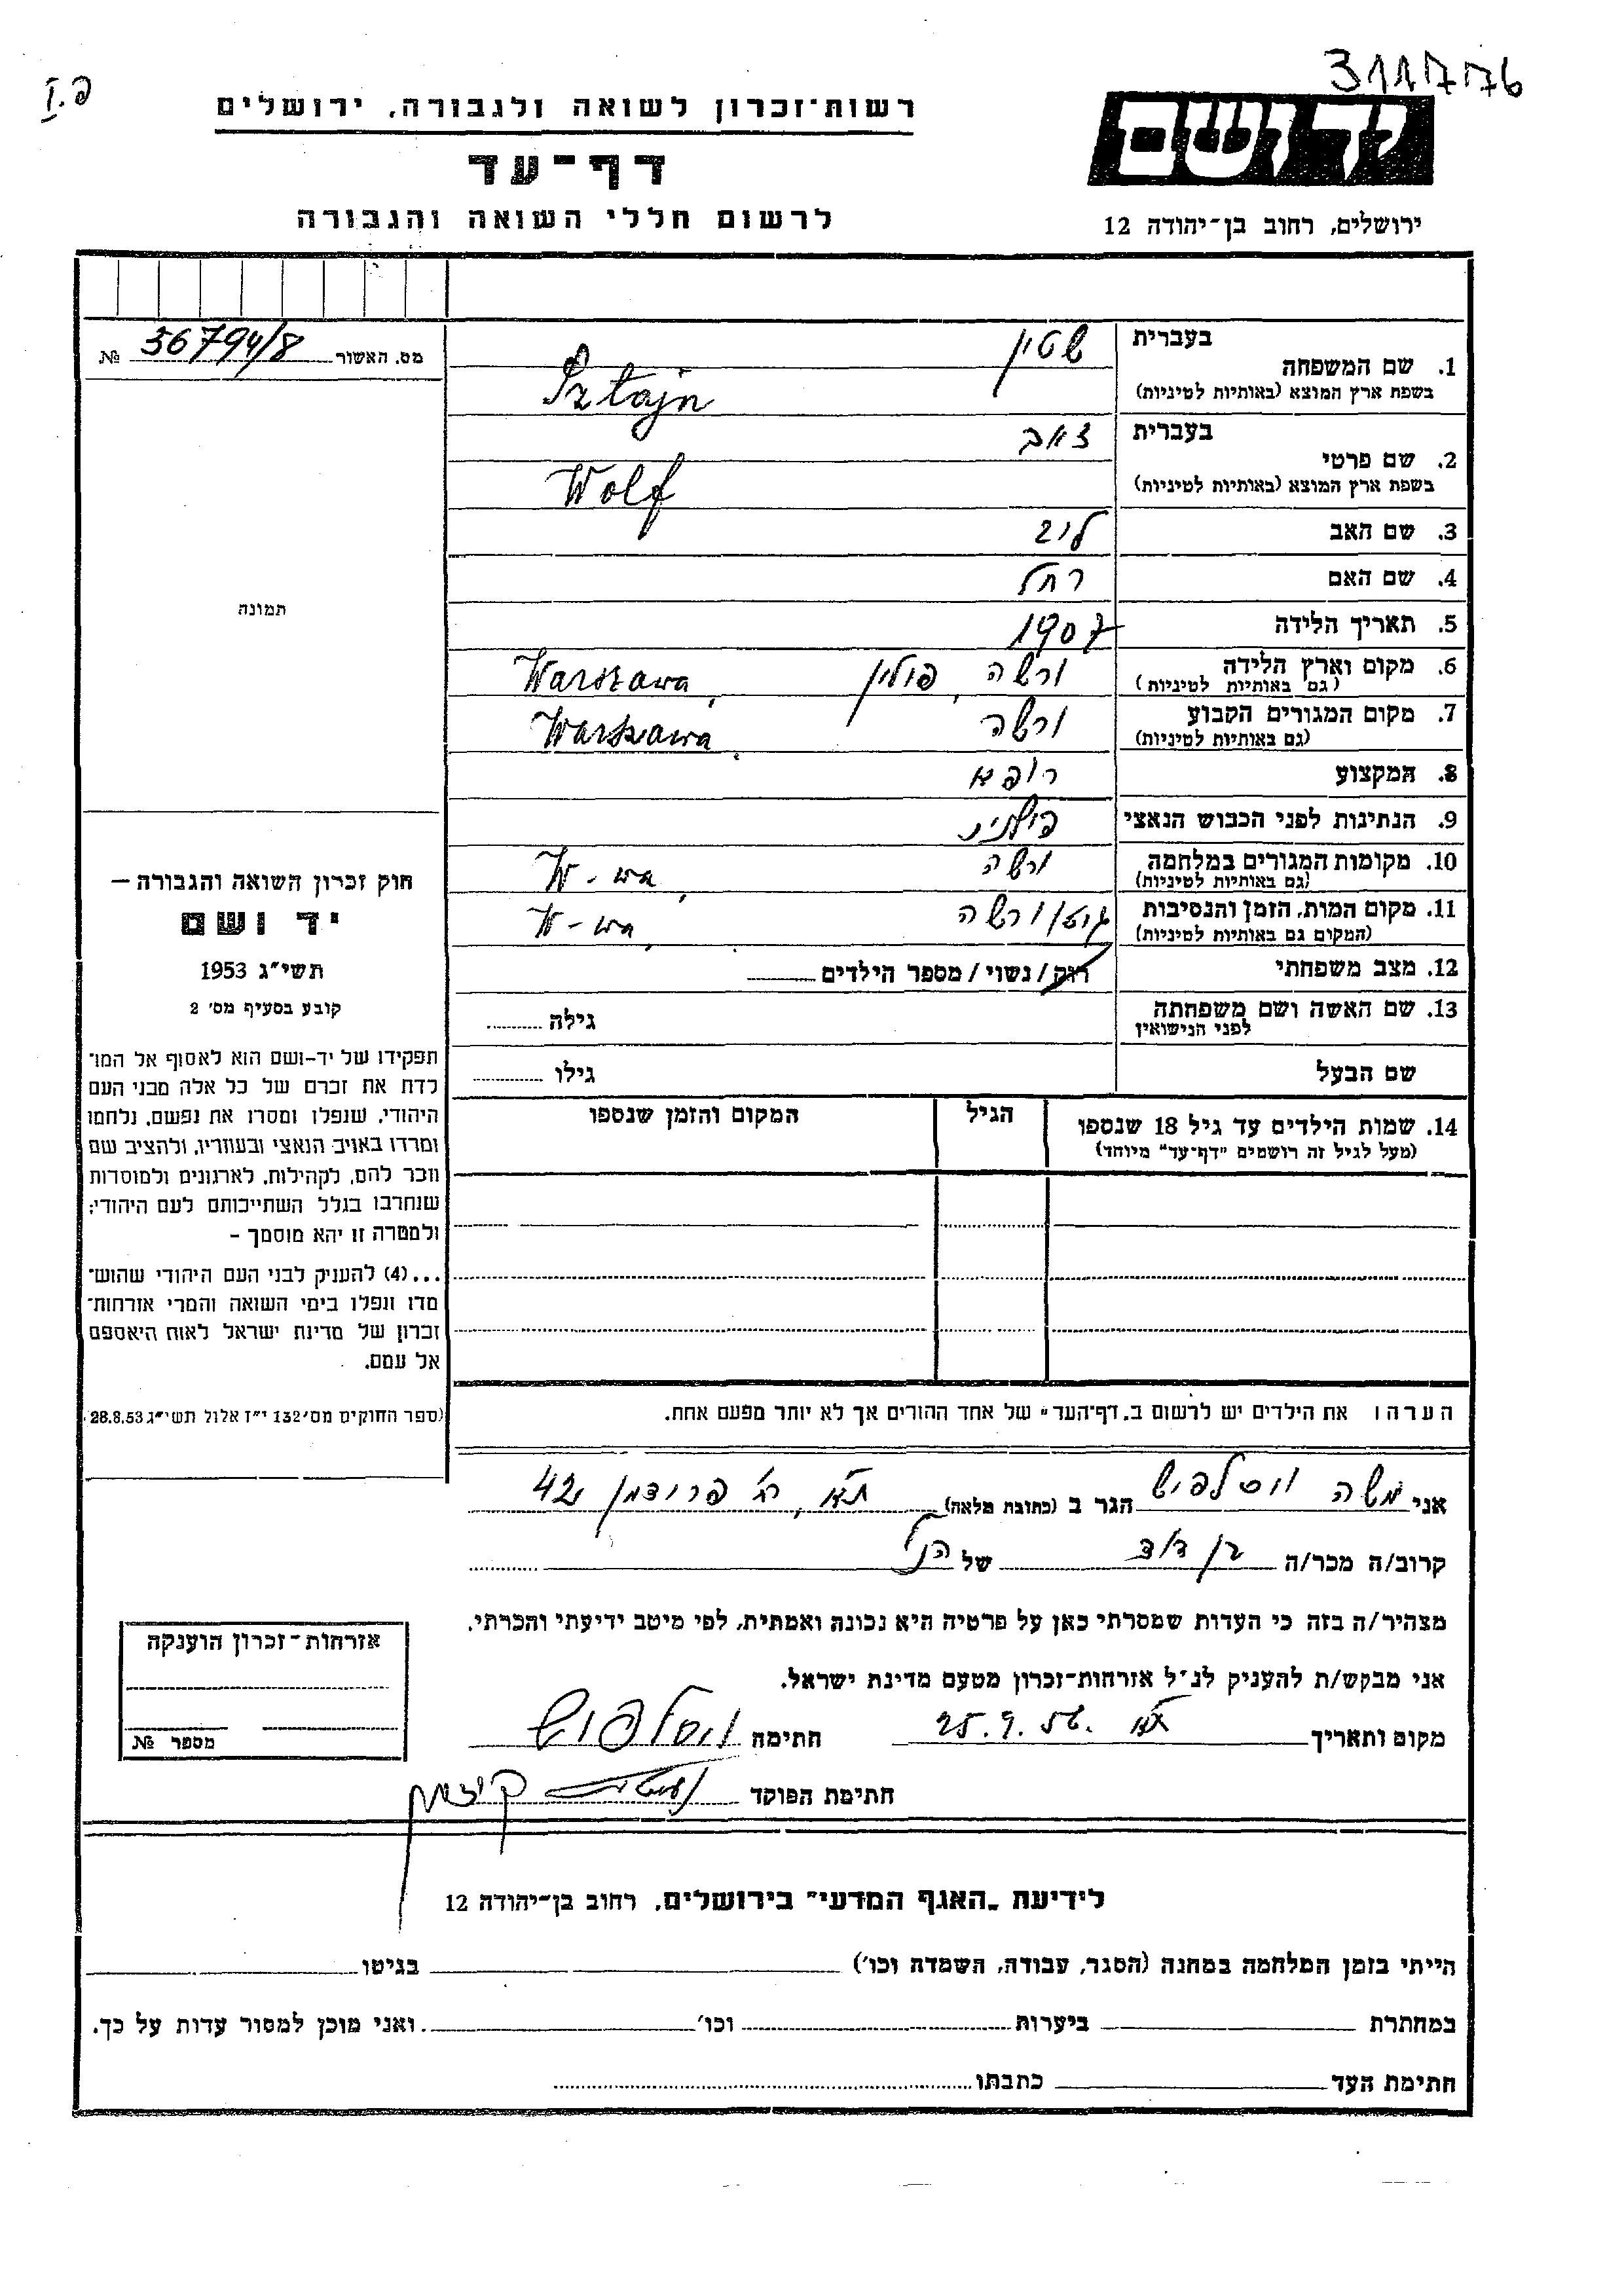 3117776
פ.I
רשות־זכרון לשואה ולגבורה, ירושלים
יד ושם
דף־עד
לרשום חללי השואה והגבורה
ירושלים, רחוב בן־יהודה 12
מס. האשור 56794/8 №
1. שם המשפחה בעברית שטין
בשפת ארץ המוצא (באותיות לטיניות) Sztajn
2. שם פרטי בעברית זאב
בשפת ארץ המוצא (באותיות לטיניות) Wolf
3. שם האב לוב
4. שם האם רחל
5. תאריך הלידה 1907
6. מקום וארץ הלידה ורשה, פולין Warszawa,
(גם באותיות לטיניות)
7. מקום המגורים הקבוע ורשה Warszawa
(גם באותיות לטיניות)
8. המקצוע רופא
9. הנתינות לפני הכבוש הנאצי פולנית
10. מקומות המגורים במלחמה ורשה W-wa,
(גם באותיות לטיניות)
11. מקום המות, הזמן והנסיבות גיטו ורשה W-wa,
(המקום גם באותיות לטיניות)
12. מצב משפחתי רוק/נשוי/מספר הילדים
13. שם האשה ושם משפחתה גילה
לפני הנישואין
שם הבעל גילו
14. שמות הילדים עד גיל 18 שנספו הגיל המקום והזמן שנספו
(מעל לגיל זה רושמים "דף־עד" מיוחד)
הערה: את הילדים יש לרשום ב„דף־העד" של אחד ההורים אך לא יותר מפעם אחת.
תמונה
חוק זכרון השואה והגבורה —
יד ושם
תשי״ג 1953
קובע בסעיף מס׳ 2
תפקידו של יד-ושם הוא לאסוף אל המו־
לדת את זכרם של כל אלה מבני העם
היהודי, שנפלו ומסרו את נפשם, נלחמו
ומרדו באויב הנאצי ובעוזריו, ולהציב שם
וזכר להם, לקהילות, לארגונים ולמוסדות
שנחרבו בגלל השתייכותם לעם היהודי;
ולמטרה זו יהא מוסמך –
...(4) להעניק לבני העם היהודי שהוש־
מדו ונפלו בימי השואה והמרי אזרחות־
זכרון של מדינת ישראל לאות היאספם
אל עמם.
(ספר החוקים מס׳ 132 י״ז אלול תשי״ג 28.8.53)
אני משה ווסלפיש הגר ב (כתובת מלאה) ת״א, רח׳ פרוזמן 42
קרוב/ה מכר/ה בן דוד של הנ״ל
מצהיר/ה בזה כי העדות שמסרתי כאן על פרטיה היא נכונה ואמתית, לפי מיטב ידיעתי והכרתי.
אני מבקש/ת להעניק לנ״ל אזרחות־זכרון מטעם מדינת ישראל.
מקום ותאריך ת״א 25.9.56. חתימה ווסלפיש
חתימת הפוקד
אזרחות־זכרון הוענקה
מספר №
לידיעת „האגף המדעי" בירושלים, רחוב בן־יהודה 12
הייתי בזמן המלחמה במחנה (הסגר, עבודה, השמדה וכו׳) בגיטו
במחתרת ביערות וכו׳ ואני מוכן למסור עדות על כך.
חתימת העד כתבתו